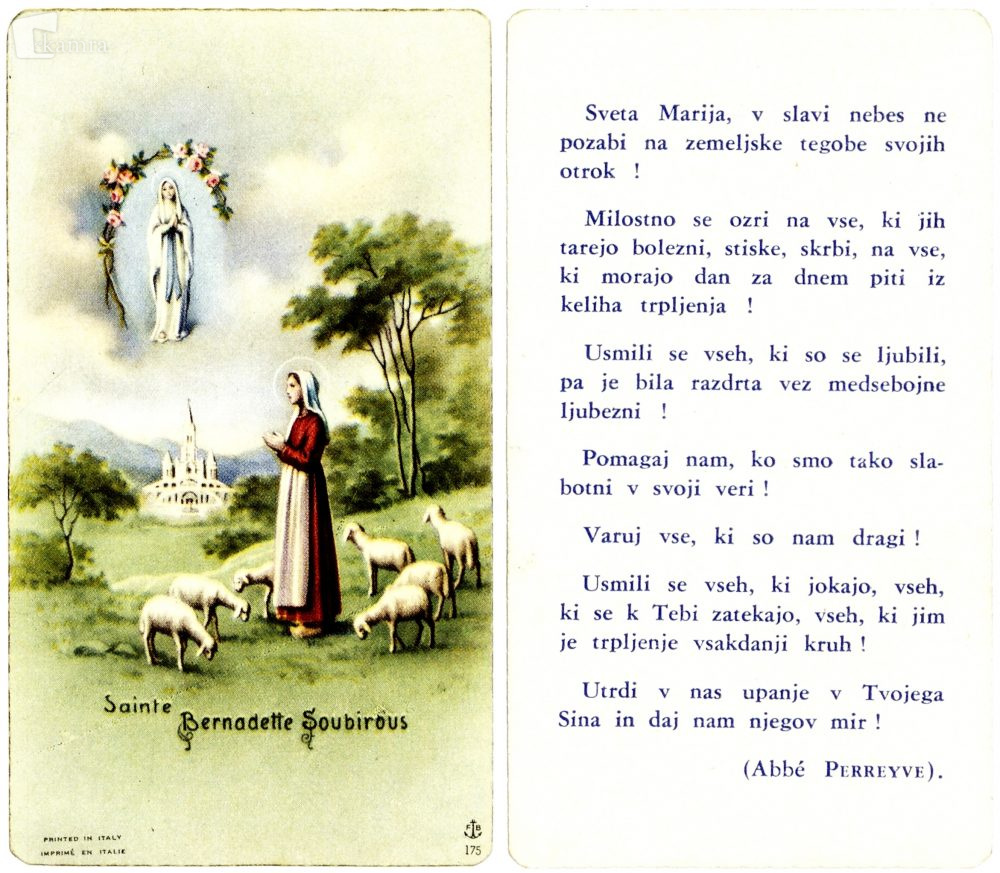 kamra
Sainte
Bernadette Soubirous
PRINTED IN ITALY
IMPRIMÉ EN ITALIE
FB
175
Sveta Marija, v slavi nebes ne
pozabi na zemeljske tegobe svojih
otrok !
Milostno se ozri na vse, ki jih
tarejo bolezni, stiske, skrbi, na vse,
ki morajo dan za dnem piti iz
keliha trpljenja !
Usmili se vseh, ki so se ljubili,
pa je bila razdrta vez medsebojne
ljubezni !
Pomagaj nam, ko smo tako sla-
botni v svoji veri !
Varuj vse, ki so nam dragi !
Usmili se vseh, ki jokajo, vseh,
ki se k Tebi zatekajo, vseh, ki jim
je trpljenje vsakdanji kruh !
Utrdi v nas upanje v Tvojega
Sina in daj nam njegov mir !
(Abbé PERREYVE).